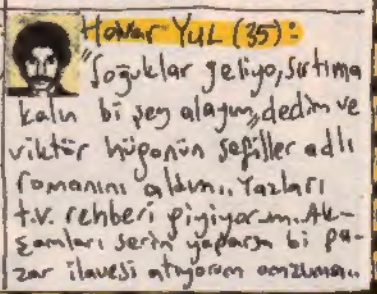 Hovar Yul (35):
"Soğuklar geliyo, sırtıma
kalın bi şey alayım, dedim ve
viktör hügonün sefiller adlı
romanını aldım.. Yazları
t.v. rehberi giyiyorum.. Ak-
şamları serin yaparsa bi pa-
zar ilavesi atıyorum omzuma..